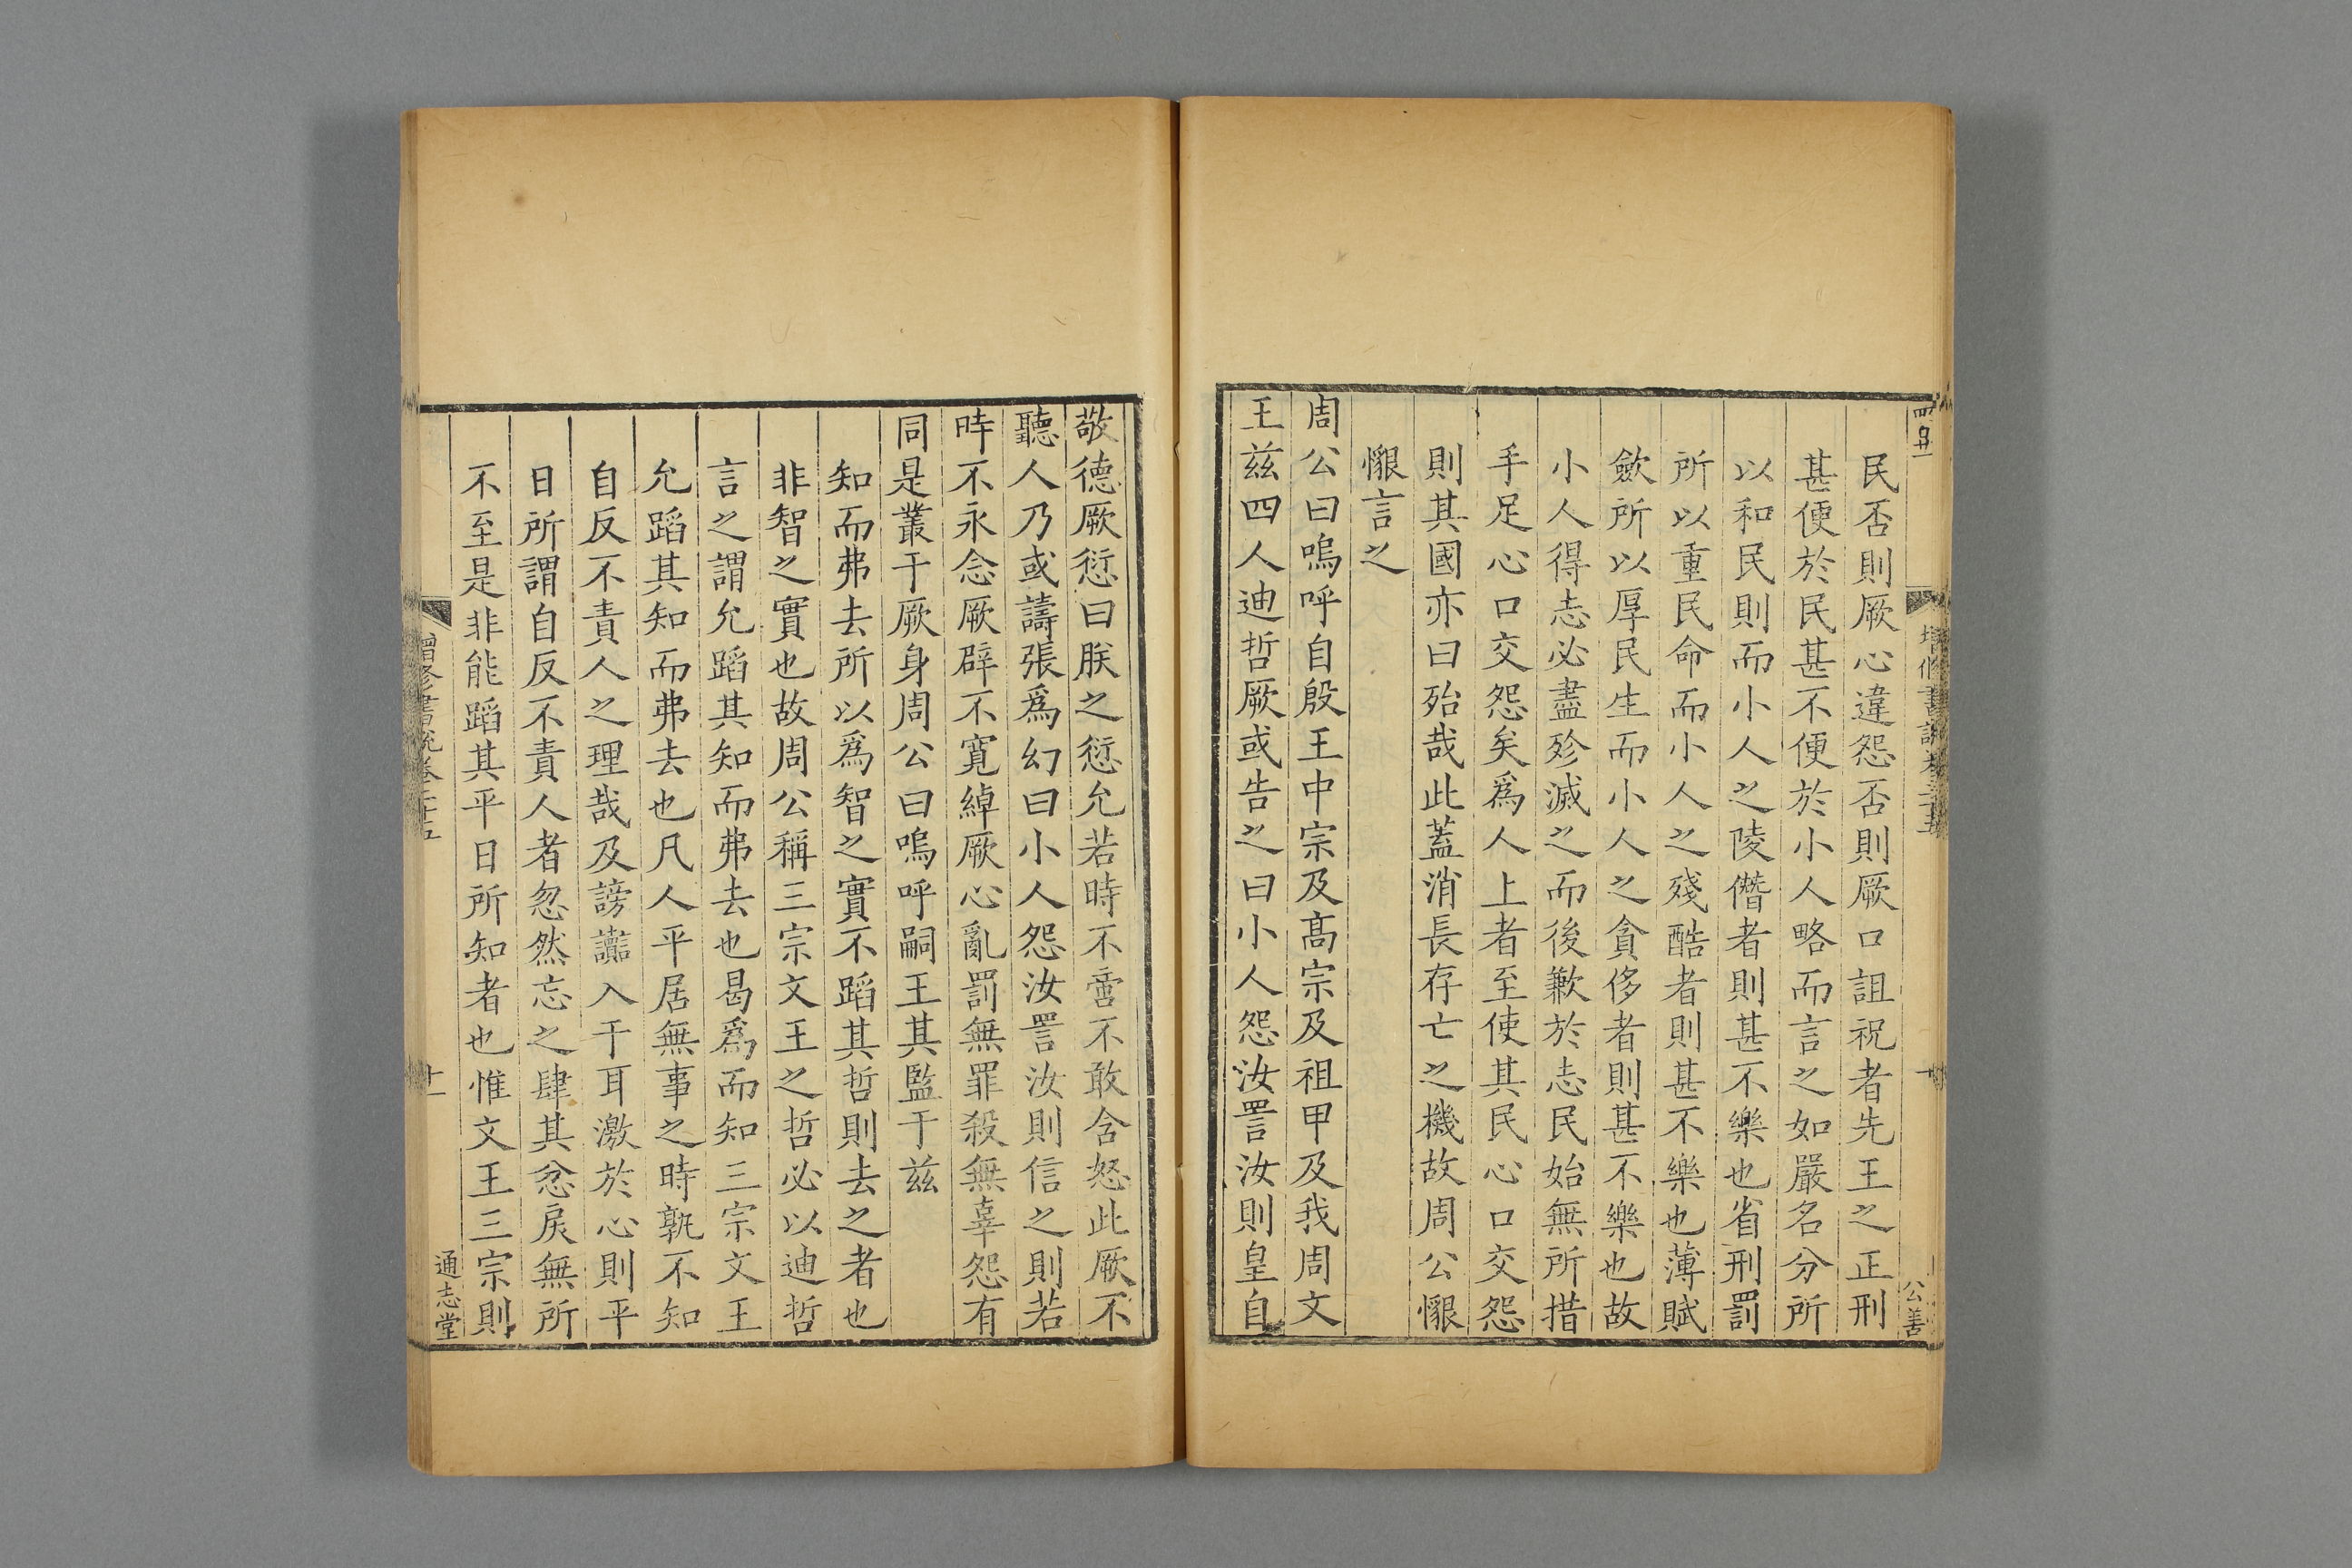 民否則厥心違怨否則厥口詛祝者先王之正刑
甚便於民甚不便於小人略而言之如嚴名分所
以和民則而小人之陵僭者則甚不樂也省刑罰
所以重民命而小人之殘酷者則甚不樂也薄賦
斂所以厚民生而小人之貪侈者則甚不樂也故
小人得志必盡殄滅之而後歉於志民始無所措
手足心口交怨矣爲人上者至使其民心口交怨
則其國亦曰殆哉此蓋消長存亡之機故周公懇
懇言之
周公曰嗚呼自殷王中宗及高宗及祖甲及我周文
王兹四人迪哲厥或告之曰小人怨汝詈汝則皇自
敬德厥愆曰朕之愆允若時不啻不敢含怒此厥不
聽人乃或譸張爲幻曰小人怨汝詈汝則信之則若
時不永念厥辟不寬綽厥心亂罰無罪殺無辜怨有
同是叢于厥身周公曰嗚呼嗣王其監于兹
知而弗去所以爲智之實不蹈其哲則去之者也
非智之實也故周公稱三宗文王之哲必以迪哲
言之謂允蹈其知而弗去也曷爲而知三宗文王
允蹈其知而弗去也凡人平居無事之時孰不知
自反不責人之理哉及謗讟入于耳激於心則平
日所謂自反不責人者忽然忘之肆其忿戾無所
不至是非能蹈其平日所知者也惟文王三宗則
增修書說卷二十五
十一
通志堂
公善